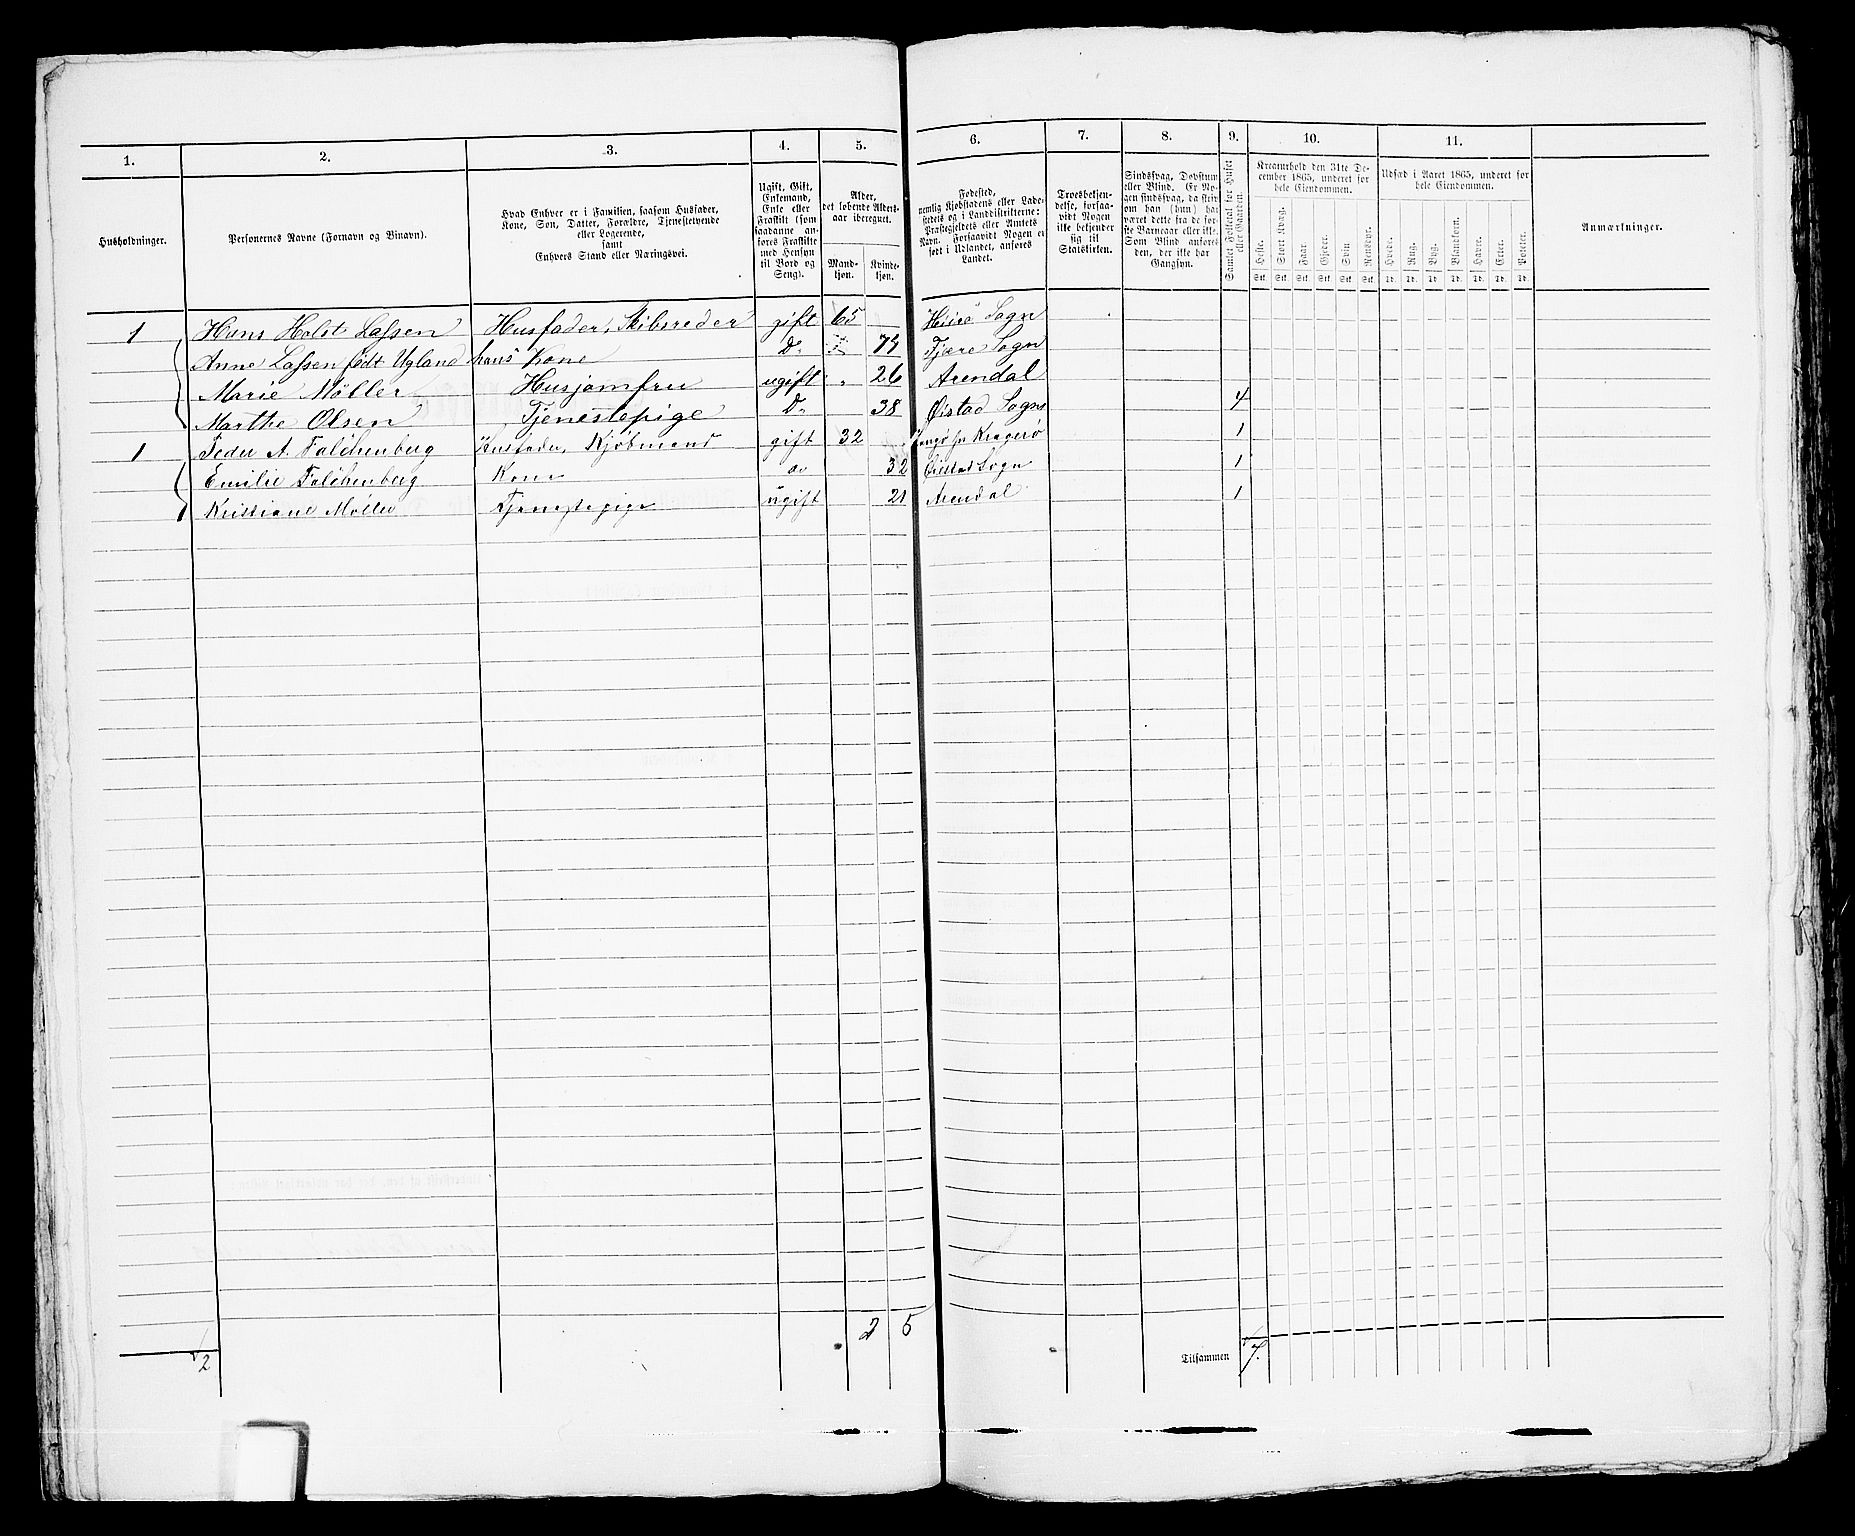 1. 2. 3. 4. 5. 6. 7. 8. 9. 10. 11.
Husholdninger.
Personernes Navne (Fornavn og Binavn).
Hvad Enhver er i Familien, saasom Husfader,
Kone, Søn, Datter, Forældre, Tjenestetyende
eller Logerende,
samt
Enhvers Stand eller Næringsvei.
Ugift, Gift,
Enkemand,
Enke eller
Fraskilt (som
saadanne an-
føres Fraskilte
med Hensyn
til Bord og
Seng).
Alder,
det løbende Alders-
aar iberegnet.
Mand-
kjøn.
Kvinde-
kjøn.
Fødested,
nemlig Kjøbstadens eller Lade-
stedets og i Landdistrikterne:
Præstegjeldets eller Annexets
Navn. Forsaavidt Nogen er
født i Udlandet, anføres
Landet.
Troesbekjen-
delse, forsaa-
vidt Nogen
ikke bekjender
sig til
Statskirken.
Sindssvag, Døvstum
eller Blind. Er No-
gen sindssvag, da skriv
om han (hun) har
været dette fra de før-
ste Barneaar eller ikke.
Som Blind anføres
den, der ikke har
Gangsyn.
Samlet Folketal for Huset
eller Gaarden.
Kreaturhold den 31te De-
cember 1865, underet for
hele Eiendommen.
Heste. Stort Kvæg. Faar. Gjeder. Svin Rensdyr.
Stk. Stk. Stk. Stk. Stk. Stk.
Udsæd i Aaret 1865, underet for
hele Eiendommen.
Hvede. Rug. Byg. Blandkorn. Havre. Erter. Poteter.
Td. Td. Td. Td. Td. Td. Td.
Anmærkninger.
1 Hans Holst Lassen Husfader, Skibsreder gift 65 Hisø Sogn
Anne Lassen født Ugland hans Kone Do Fjære Sogn
Marie Møller Husjomfru ugift 26 Arendal
Marthe Olsen Tjenestepige Do 38 Øistad Sogn 4
1 Peder A. Falchenberg Husfader, Kjøbmand gift 32 Kragerø 1
Emilie Falchenberg Kone do 32 Øiestad Sogn 1
Kristiane Møller Tjenestepige ugift 21 Arendal 1
2 2 5 Tilsammen 7.